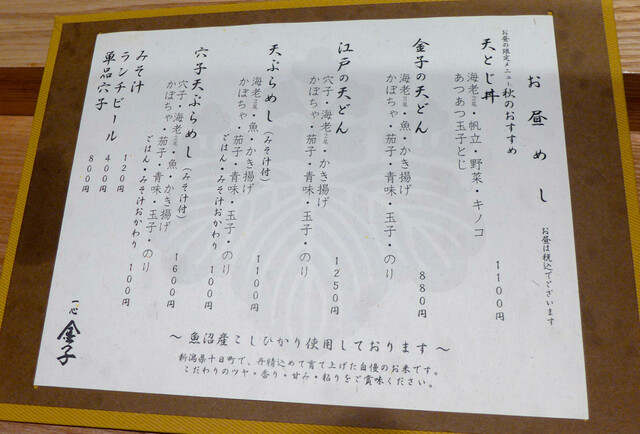 お昼めし
お昼は税込でございます
お昼の限定メニュー秋のおすすめ
天とじ丼
海老二尾・帆立・野菜・キノコ
あつあつ玉子とじ
1100円
金子の天どん
海老二尾・魚・かき揚げ
かぼちゃ・茄子・青味・玉子・のり
880円
江戸の天どん
穴子・海老二尾・かき揚げ
かぼちゃ・茄子・青味・玉子・のり
1250円
天ぷらめし(みそ汁付)
海老二尾・魚・かき揚げ
かぼちゃ・茄子・青味・玉子・のり
1100円
ごはん・みそ汁おかわり 100円
穴子天ぷらめし(みそ汁付)
穴子・海老二尾・魚・かき揚げ
かぼちゃ・茄子・青味・玉子・のり
1600円
ごはん・みそ汁おかわり 100円
みそ汁 120円
ランチビール 400円
単品穴子 800円
一心 金子
～魚沼産こしひかり使用しております～
新潟県十日町で、丹精込めて育て上げた自慢のお米です。
こだわりのツヤ・香り・甘み・粘りをご賞味ください。